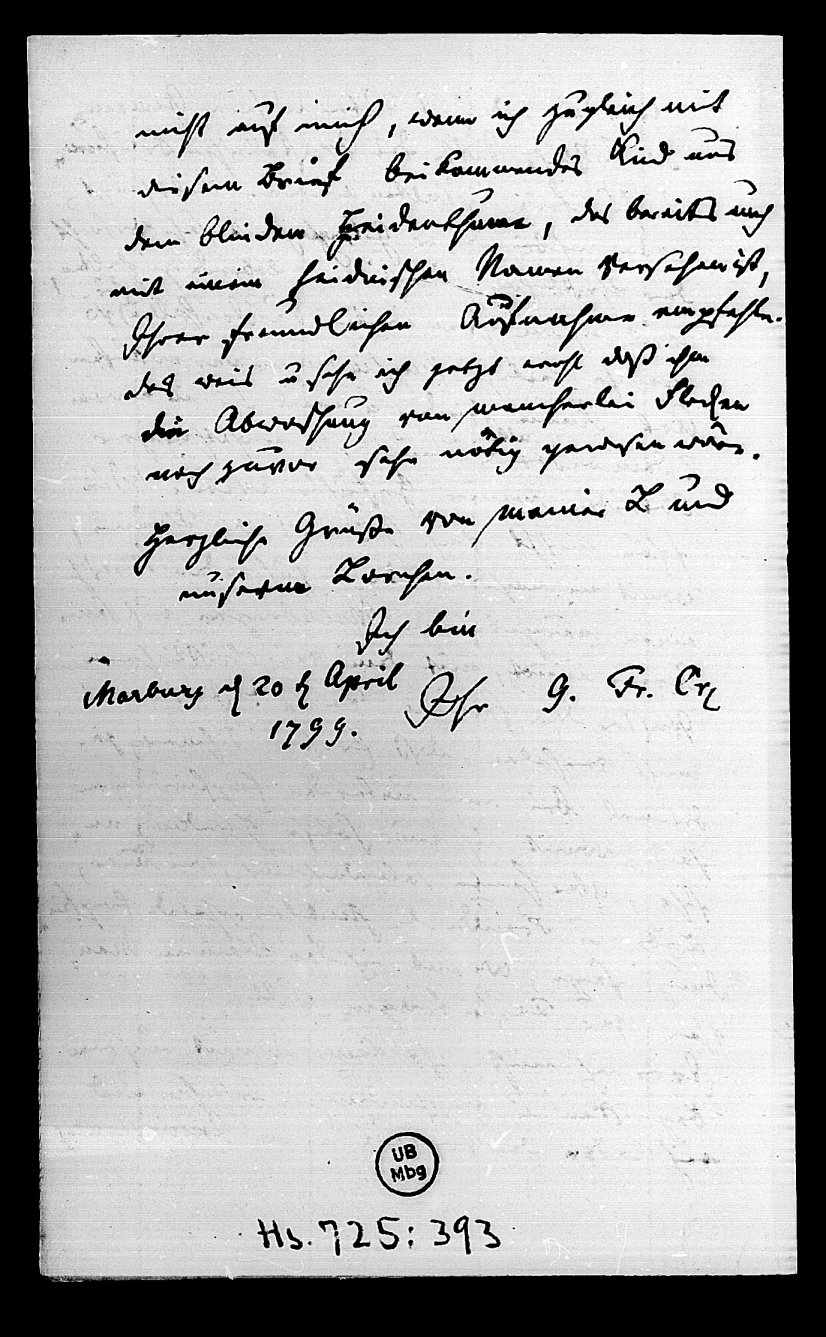 nicht auf mich, wenn ich zugleich mit
diesem Brief beikommendes Kind aus
dem blinden Heidenthume, das bereits auch
mit einem heidnischen Namen versehen ist,
Ihrer freundlichen Aufnahme empfehle.
das weis u sehe ich jetzt erst daß ihm
die Abwaschung von mancherlei Flecken
noch zuvor sehr nötig gewesen wäre.
Herzliche Grüße von meiner L und
unserm Lorchen.
Ich bin
Marburg d 20 April
1799.
Ihr G. Fr. Cr
UB
Mbg
Hs. 725: 393